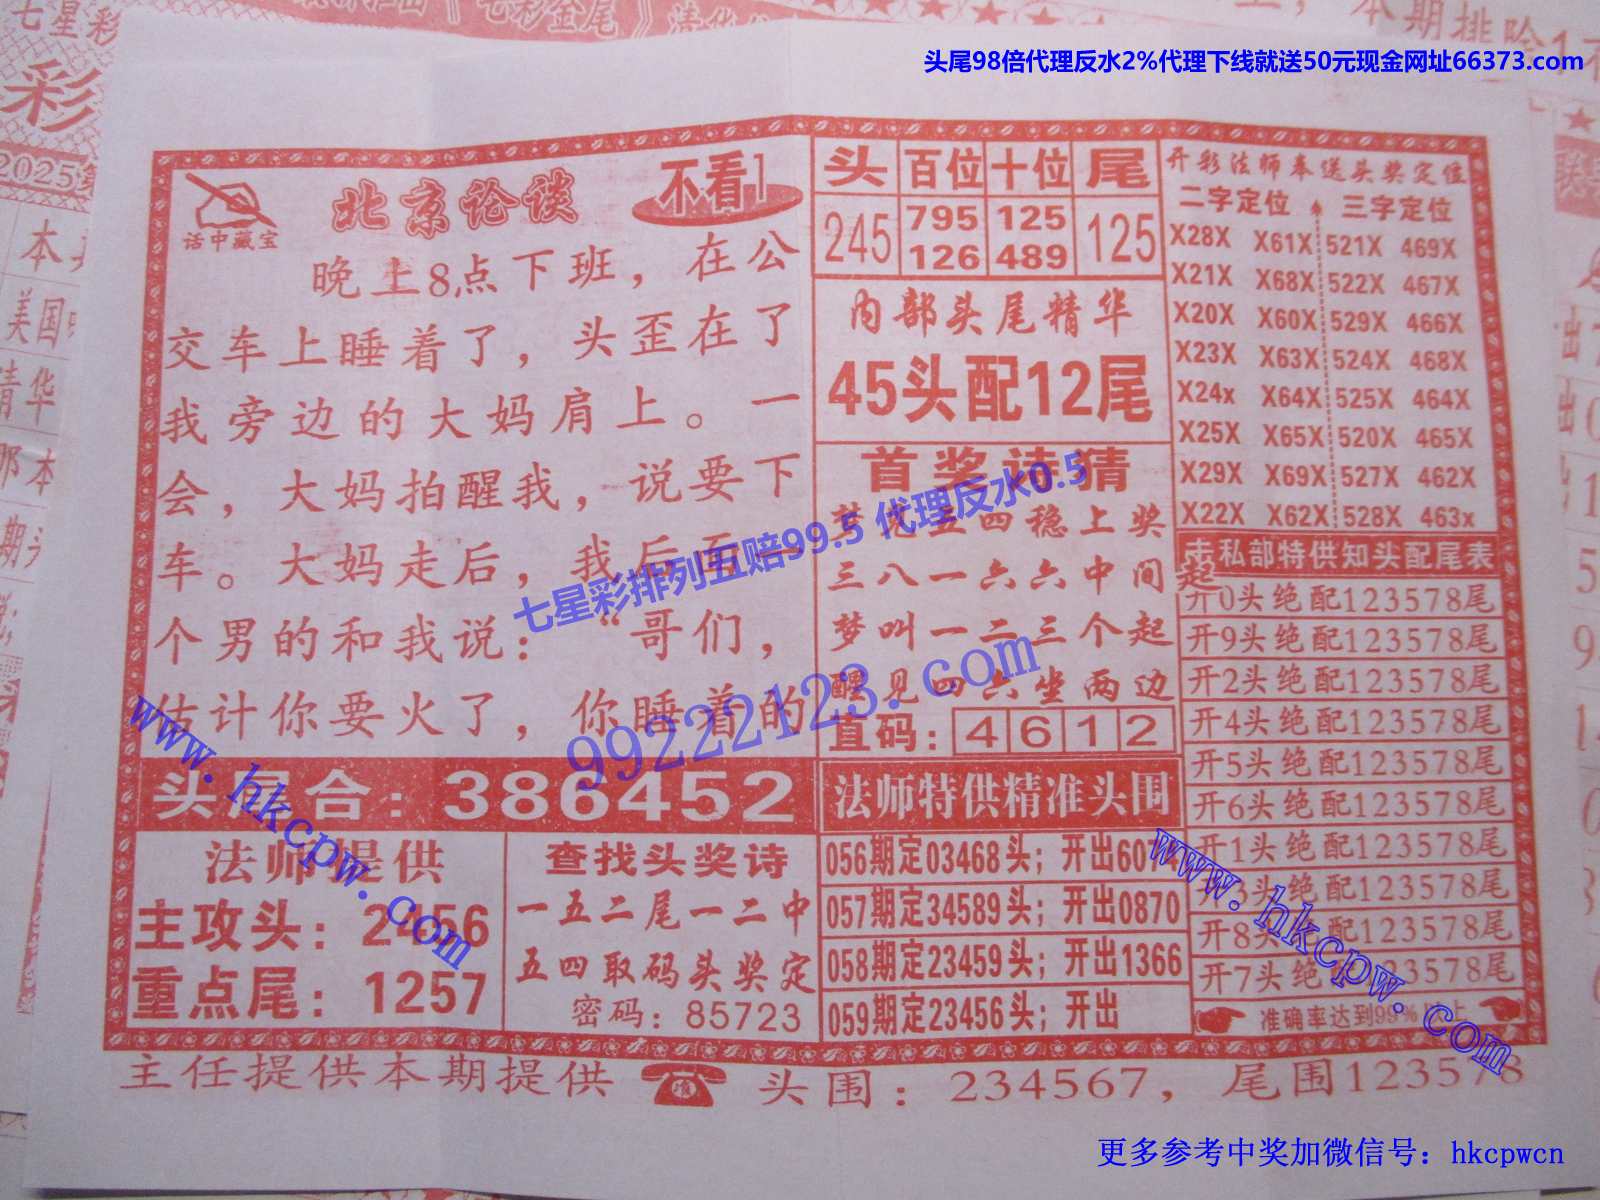 头尾98倍代理反水2%代理下线就送50元现金网址66373.com
七星彩
彩
2025第
话中藏宝
北京论谈
不看1
晚上8点下班，在公
交车上睡着了，头歪在了
我旁边的大妈肩上。一
会，大妈拍醒我，说要下
车。大妈走后，我后面一
个男的和我说：“哥们，
估计你要火了，你睡着的
头尾合：386452
法师提供
主攻头：2456
重点尾：1257
查找头奖诗
一五二尾一二中
五四取码头奖定
密码：85723
头 百位 十位 尾
245 795 125 125
126 489
内部头尾精华
45头配12尾
首奖诗猜
梦见五四稳上奖
三八一六六中间
梦叫一二三个起
醒见四六坐两边
直码：4 6 1 2
法师特供精准头围
056期定03468头；开出607
057期定34589头；开出0870
058期定23459头；开出1366
059期定23456头；开出
开彩法师奉送头奖定位
二字定位 三字定位
X28X X61X 521X 469X
X21X X68X 522X 467X
X20X X60X 529X 466X
X23X X63X 524X 468X
X24x X64X 525X 464X
X25X X65X 520X 465X
X29X X69X 527X 462X
X22X X62X 528X 463x
私部特供知头配尾表
开0头绝配123578尾
开9头绝配123578尾
开2头绝配123578尾
开4头绝配123578尾
开5头绝配123578尾
开6头绝配123578尾
开1头绝配123578尾
开3头绝配123578尾
开8头绝配123578尾
开7头绝配123578尾
准确率达到99%以上
主任提供本期提供 准 头围：234567，尾围123578
七星彩排列五赔99.5 代理反水0.5
起
99222123.com
www.hkcpw.com
www.hkcpw.com
更多参考中奖加微信号：hkcpwcn